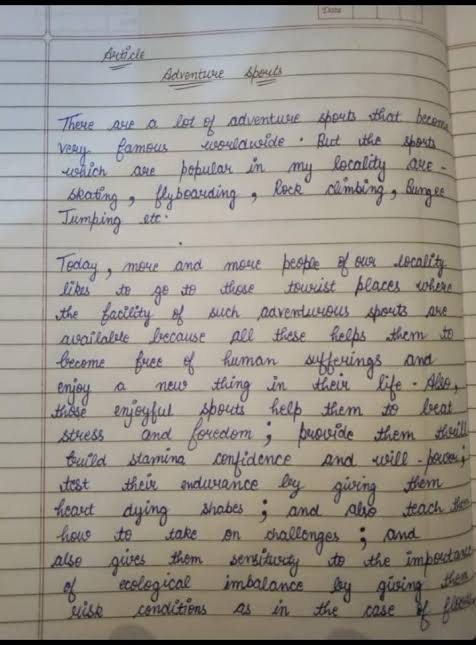 Date
Article
Adventure Sports
There are a lot of adventure sports that become
very famous worldwide. But the sports
which are popular in my locality are -
skating, flyboarding, Rock climbing, Bungee
Jumping etc.
Today, more and more people of our locality
likes to go to those tourist places where
the facility of such adventurous sports are
available because all these helps them to
become free of human sufferings and
enjoy a new thing in their life. Also,
those enjoyful spouts help them to beat
stress and foredom; provide them thrill
build stamina confidence and will-power;
test their endurance by giving them
heart dying shabes; and also teach them
how to take on challenges; and
also gives them sensiturity to the importance
of ecological imbalance by giving them
risk conditions as in the case of